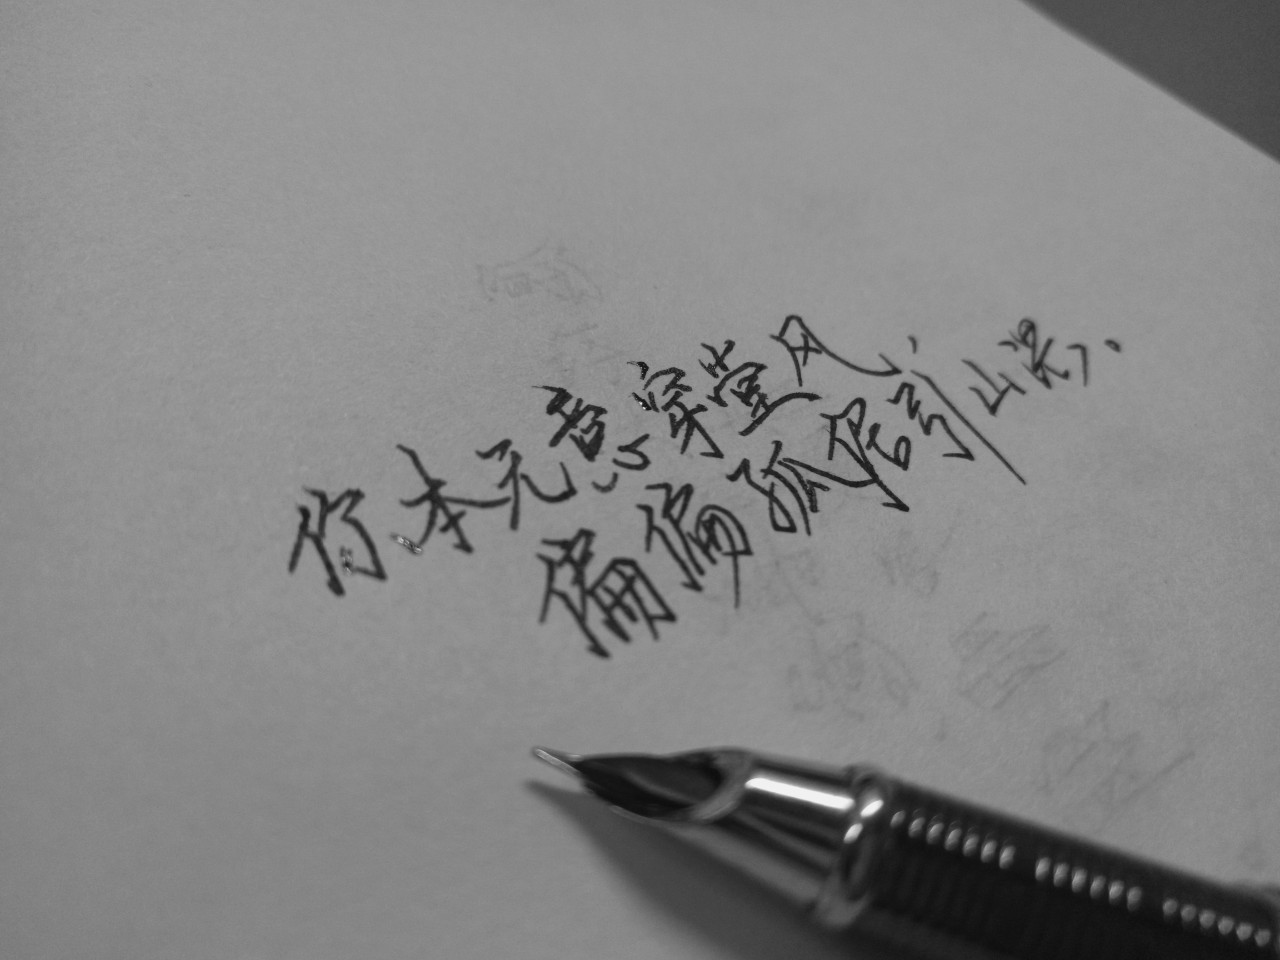 你本无意穿堂风，
偏偏孤倨引山洪。